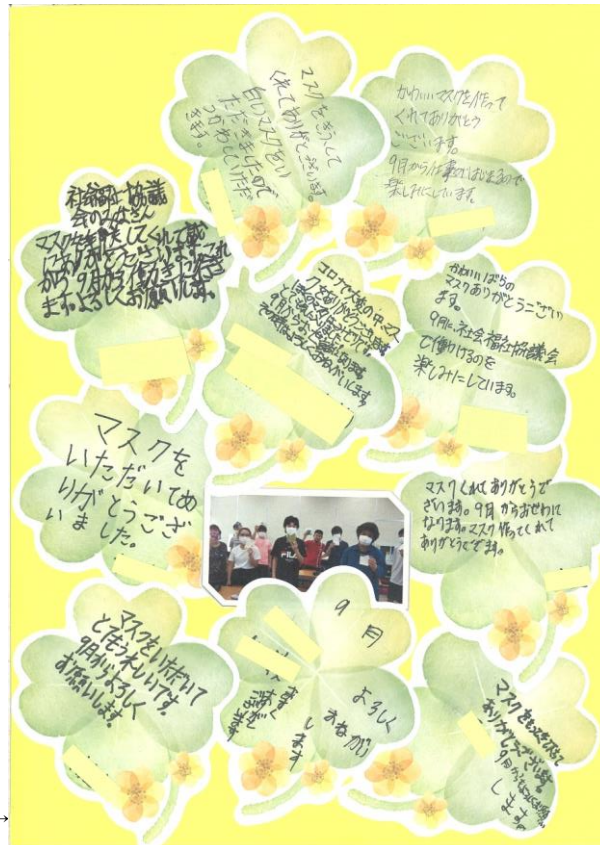 マスクをきふして
くれてありがとうございます。
白いマスクをい
ただきましたので
つかわしていただ
きます。
かわいいマスクを作って
くれてありがとう
ございます。
9月から仕事がはじまるので
楽しみにしています。
社会福祉協議
会のみなさん
マスクを寄付してくれて誠
にありがとうございます。これ
から9月から働きに行き
ます。よろしくお願いします。
コロナで大変の中、マスク
9月から
よろしくおねがいします
かわいいばらの
マスクありがとうござい
ます。
9月に社会福祉協議会
で働けるのを
楽しみにしています。
マスクを
いただいてあ
りがとうござ
いました。
マスクくれてありがとうご
ざいます。9月からおせわに
なります。マスク作ってくれて
ありがとうござます。
FILA
マスクをいただいて
とてもうれしいです。
9月からよろしく
お願いします。
9月
よろしく
おねがい
します
マスクを
ありがとうございます。
9月からよろしくお願い
します。